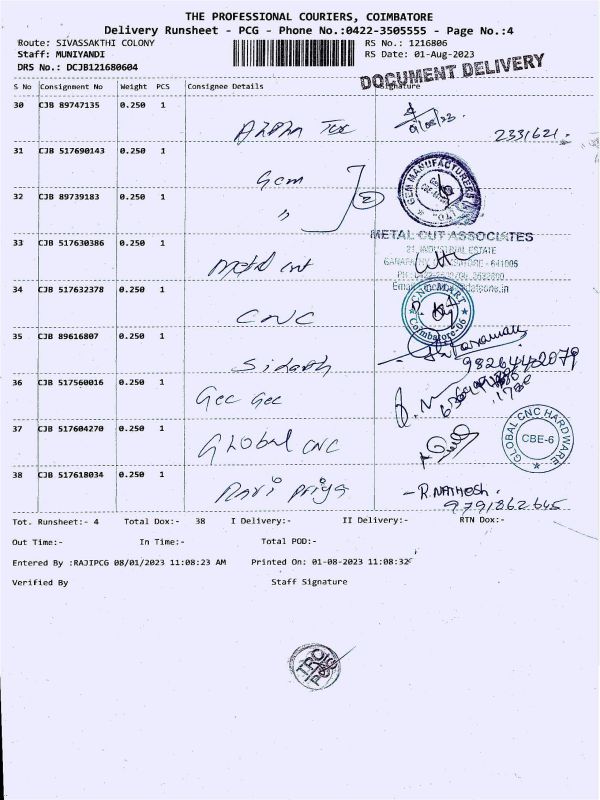 THE PROFESSIONAL COURIERS, COIMBATORE
Delivery Runsheet - PCG - Phone No.:0422-3505555 - Page No.:4
Route: SIVASSAKTHI COLONY RS No.: 1216806
Staff: MUNIYANDI RS Date: 01-Aug-2023
DRS No.: DCJB121680604
DOCUMENT DELIVERY
S No Consignment No Weight PCS Consignee Details Signature
30 CJB 89747135 0.250 1
Alpha 2331621
31 CJB 517690143 0.250 1
Gem
GEM MANUFACTURERS
32 CJB 89739183 0.250 1
" 2
METAL CUT ASSOCIATES
33 CJB 517630386 0.250 1
21, INDUSTRIAL ESTATE
Metal cut
34 CJB 517632378 0.250 1
CNC
CNC MART
Coimbatore-06
35 CJB 89616807 0.250 1
36 CJB 517560016 0.250 1
Gee Gee
37 CJB 517604270 0.250 1
Global CNC
GLOBAL CNC HARDWARE
CBE-6
38 CJB 517618034 0.250 1
Ravi Priya
9791862645
Tot. Runsheet:- 4 Total Dox:- 38 I Delivery:- II Delivery:- RTN Dox:-
Out Time:- In Time:- Total POD:-
Entered By :RAJIPCG 08/01/2023 11:08:23 AM Printed On: 01-08-2023 11:08:32
Verified By Staff Signature